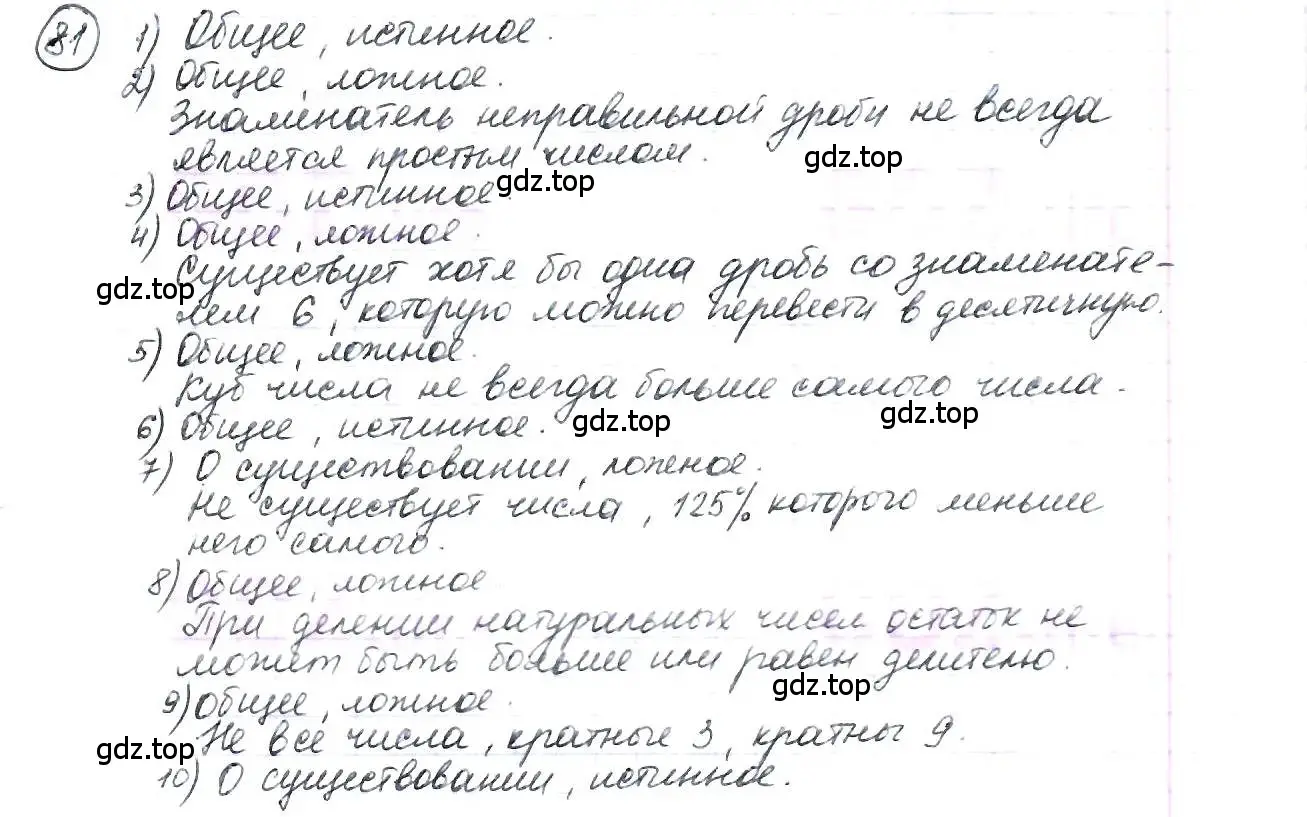 81 1) Общее, истинное.
2) Общее, ложное.
Знаменатель неправильной дроби не всегда
является простым числом.
gdz.top
3) Общее, истинное.
gdz.top
4) Общее, ложное.
Существует хотя бы одна дробь со знаменате-
gdz.top
лем 6, которую можно перевести в десятичную.
5) Общее, ложное.
Куб числа не всегда больше самого числа.
6) Общее, истинное.
gdz.top
gdz.top
7) О существовании, ложное.
Не существует числа, 125% которого меньше
него самого.
8) Общее, ложное
При делении натуральных чисел остаток не
может быть больше или равен делителю.
gdz.top
9) Общее, ложное.
Не все числа, кратные 3, кратны 9.
gdz.top
10) О существовании, истинное.